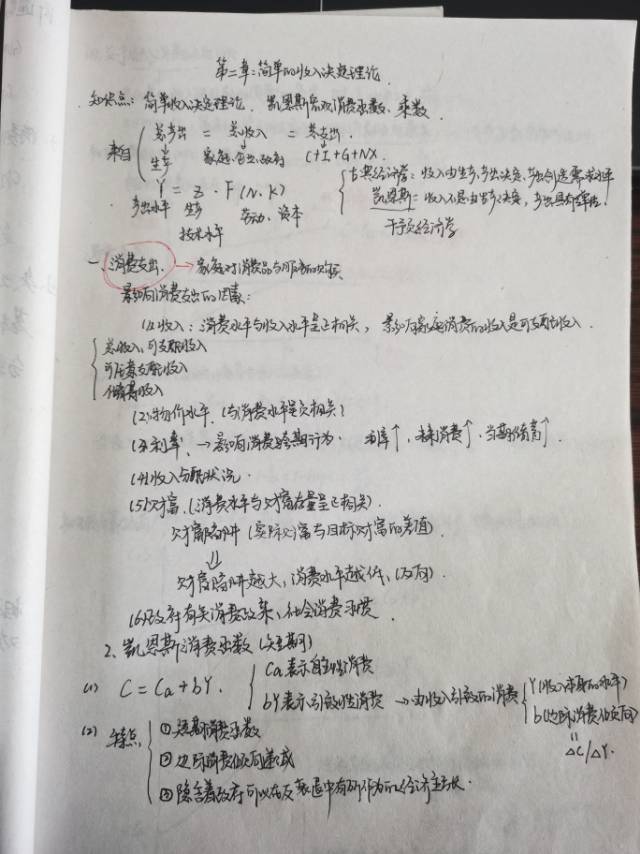 第二章：简单的收入决定理论
知识点：简单收入决定理论、凯恩斯宏观消费函数、乘数
来自 总产出 = 总收入 = 总支出
生产 家庭、企业、政府 C+I+G+NX
Y = Z · F(N.K)
产出水平 生产 劳动、资本
技术水平
古典经济学：收入由生产、产出决定，产出创造需求水平
凯恩斯：收入不是由生产决定，产出具有弹性
干预经济学
一、消费支出 → 家庭对消费品与服务的购买
影响消费支出的因素：
(1)收入：消费水平与收入水平呈正相关，影响家庭消费的收入是可支配收入.
总收入、可支配收入
可任意支配收入
(2)物价水平（与消费水平呈负相关）
(3)利率 → 影响消费跨期行为. 利率↑，未来消费↑，当期储蓄↑.
(4)收入分配状况.
(5)财富（消费水平与财富存量呈正相关）
财富陷阱（实际财富与目标财富的差值）
⇓
财富陷阱越大，消费水平越低，（反向）
(6)政府有关消费政策、社会消费习惯.
2、凯恩斯消费函数（短期）
(1) C = Ca + bY. Ca表示自主性消费
bY表示引致性消费 → 由收入引致的消费 Y(收入本身的水平)
b(边际消费倾向)
=
ΔC/ΔY.
(2) 特点 ①短期消费函数
②边际消费倾向递减
③隐含着政府可以在反衰退中有所作为的经济主张